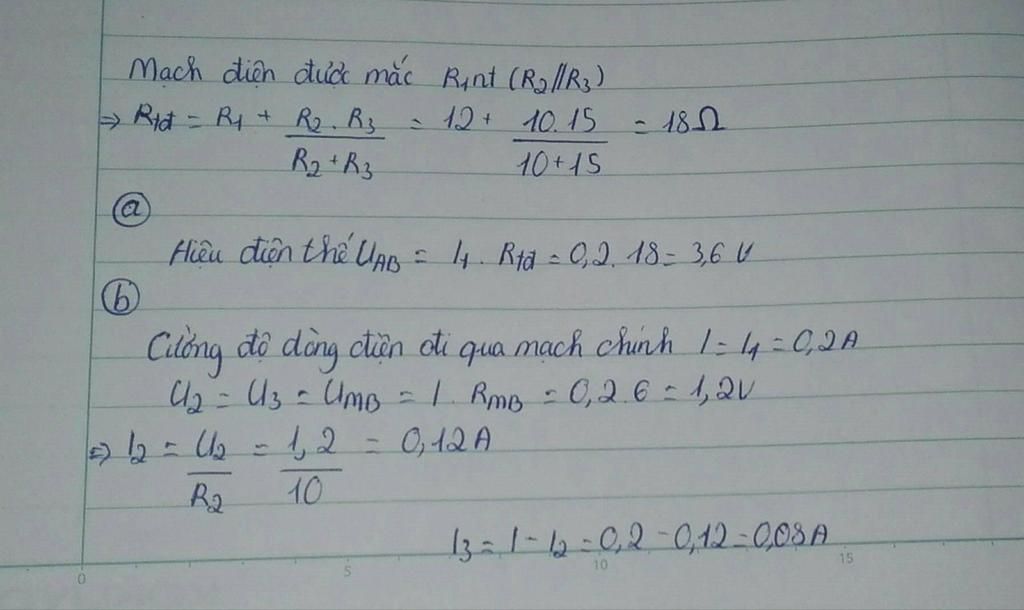 Mạch điện được mắc R1nt (R2//R3)
=> Rtđ = R1 + R2 . R3 / R2 + R3 = 12 + 10.15 / 10+15 = 18Ω
a
Hiệu điện thế UAB = I1 . Rtđ = 0,2 . 18 = 3,6 V
b
Cường độ dòng điện đi qua mạch chính I = I1 = 0,2A
U2 = U3 = UMB = I . RMB = 0,2 . 6 = 1,2V
=> I2 = U2 / R2 = 1,2 / 10 = 0,12A
I3 = I - I2 = 0,2 - 0,12 = 0,08A
0 5 10 15